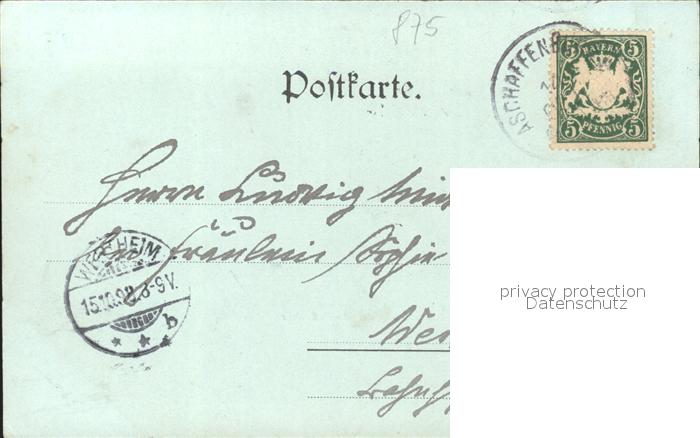 875
Postkarte.
ASCHAFFENB
5 BAYERN 5
5 PFENNIG 5
Herrn Ludwig
Fräulein Sophie
WERTHEIM
15.10.98. 8-9V.
b
privacy protection
Datenschutz